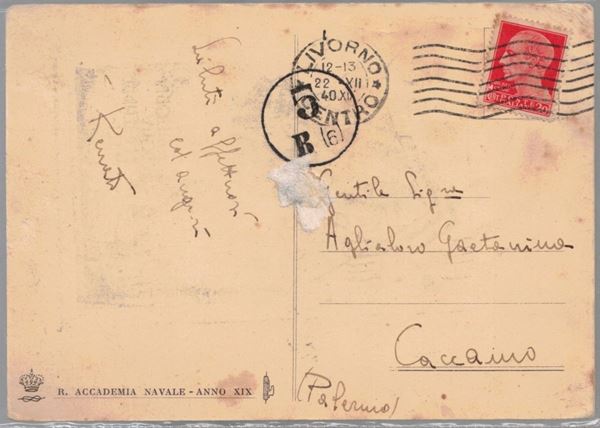 Saluti affettuosi
ed auguri
Renato
LIVORNO
12-13
22 XII
40.XIX
CENTRO
5
R (6)
Gentile Sig.na
Aglialoro Gaetanina
Caccamo
(Palermo)
R. ACCADEMIA NAVALE - ANNO XIX